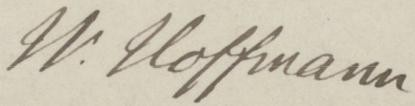 W. Hoffmann